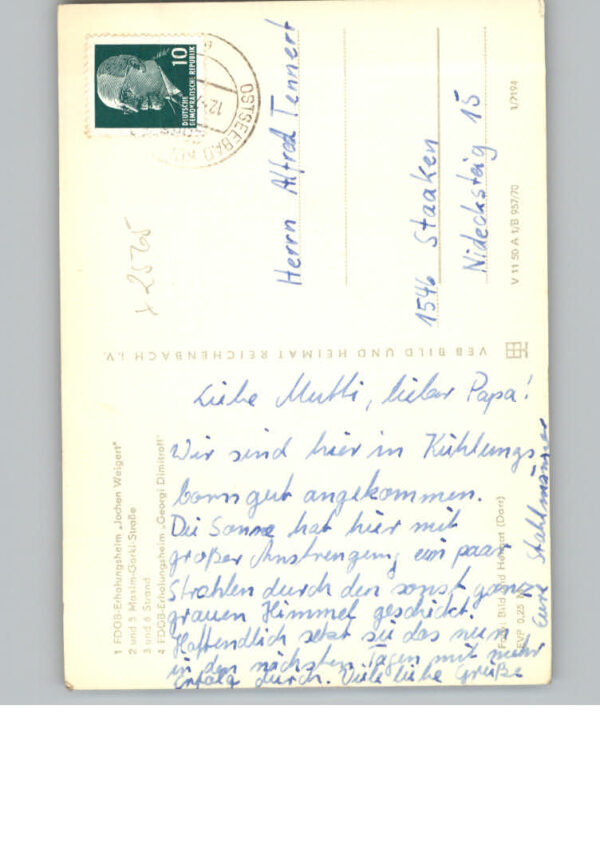 10
DEUTSCHE
DEMOKRATISCHE REPUBLIK
OSTSEEBAD
12
Herrn Alfred Tennert
1546 Staaken
Nidecksteig 15
1/7194
V 11 50 A 1/B 957/70
VEB BILD UND HEIMAT REICHENBACH I.V.
1 FDGB-Erholungsheim „Jochen Weigert"
2 und 5 Maxim-Gorki-Straße
3 und 6 Strand
4 FDGB-Erholungsheim „Georgi Dimitroff"
Liebe Mutti, lieber Papa!
Wir sind hier in Kühlungs-
born gut angekommen.
Die Sonne hat hier mit
großer Anstrengung ein paar
Strahlen durch den sonst ganz
grauen Himmel geschickt.
Hoffendlich setzt sie das nun
in den nächsten Tagen mit mehr
Erfolg durch. Viele liebe Grüße
Eure Stahlmänner
Foto: Bild und Heimat (Dorf)
EVP 0,25